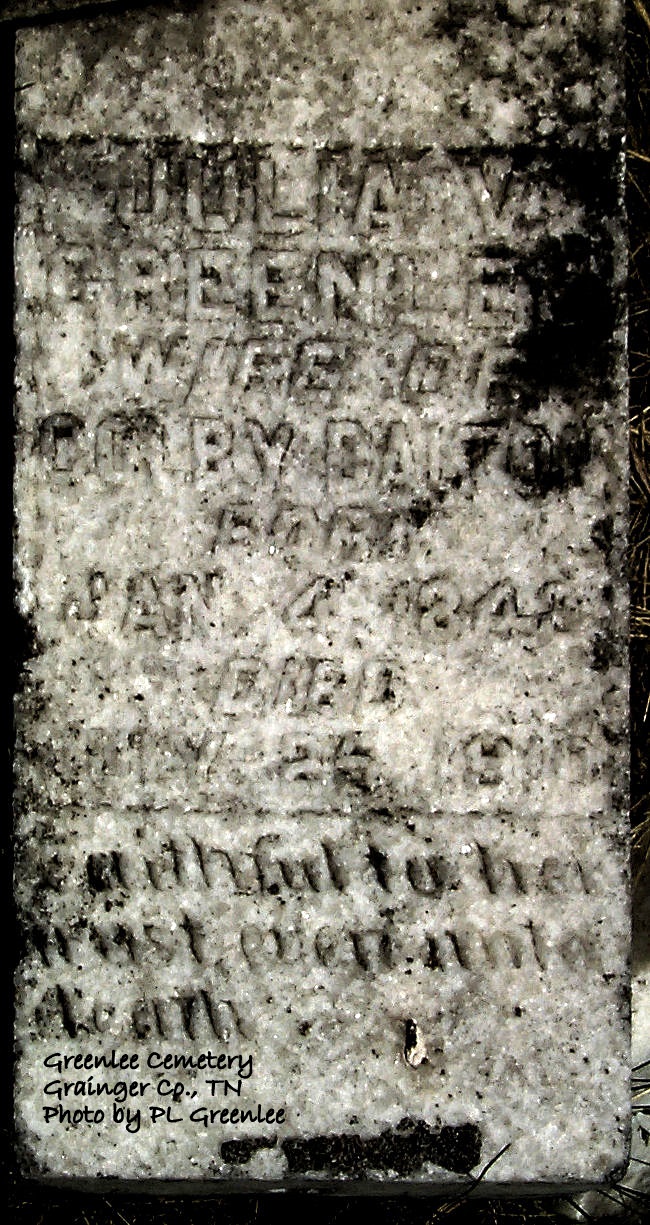 JULIA V
GREENLEE
WIFE OF
COLBY DALTON
BORN
JAN 4,
DIED
JULY 25 1910
Faithful to her
trust, even unto
death
Greenlee Cemetery
Grainger Co., TN
Photo by PL Greenlee